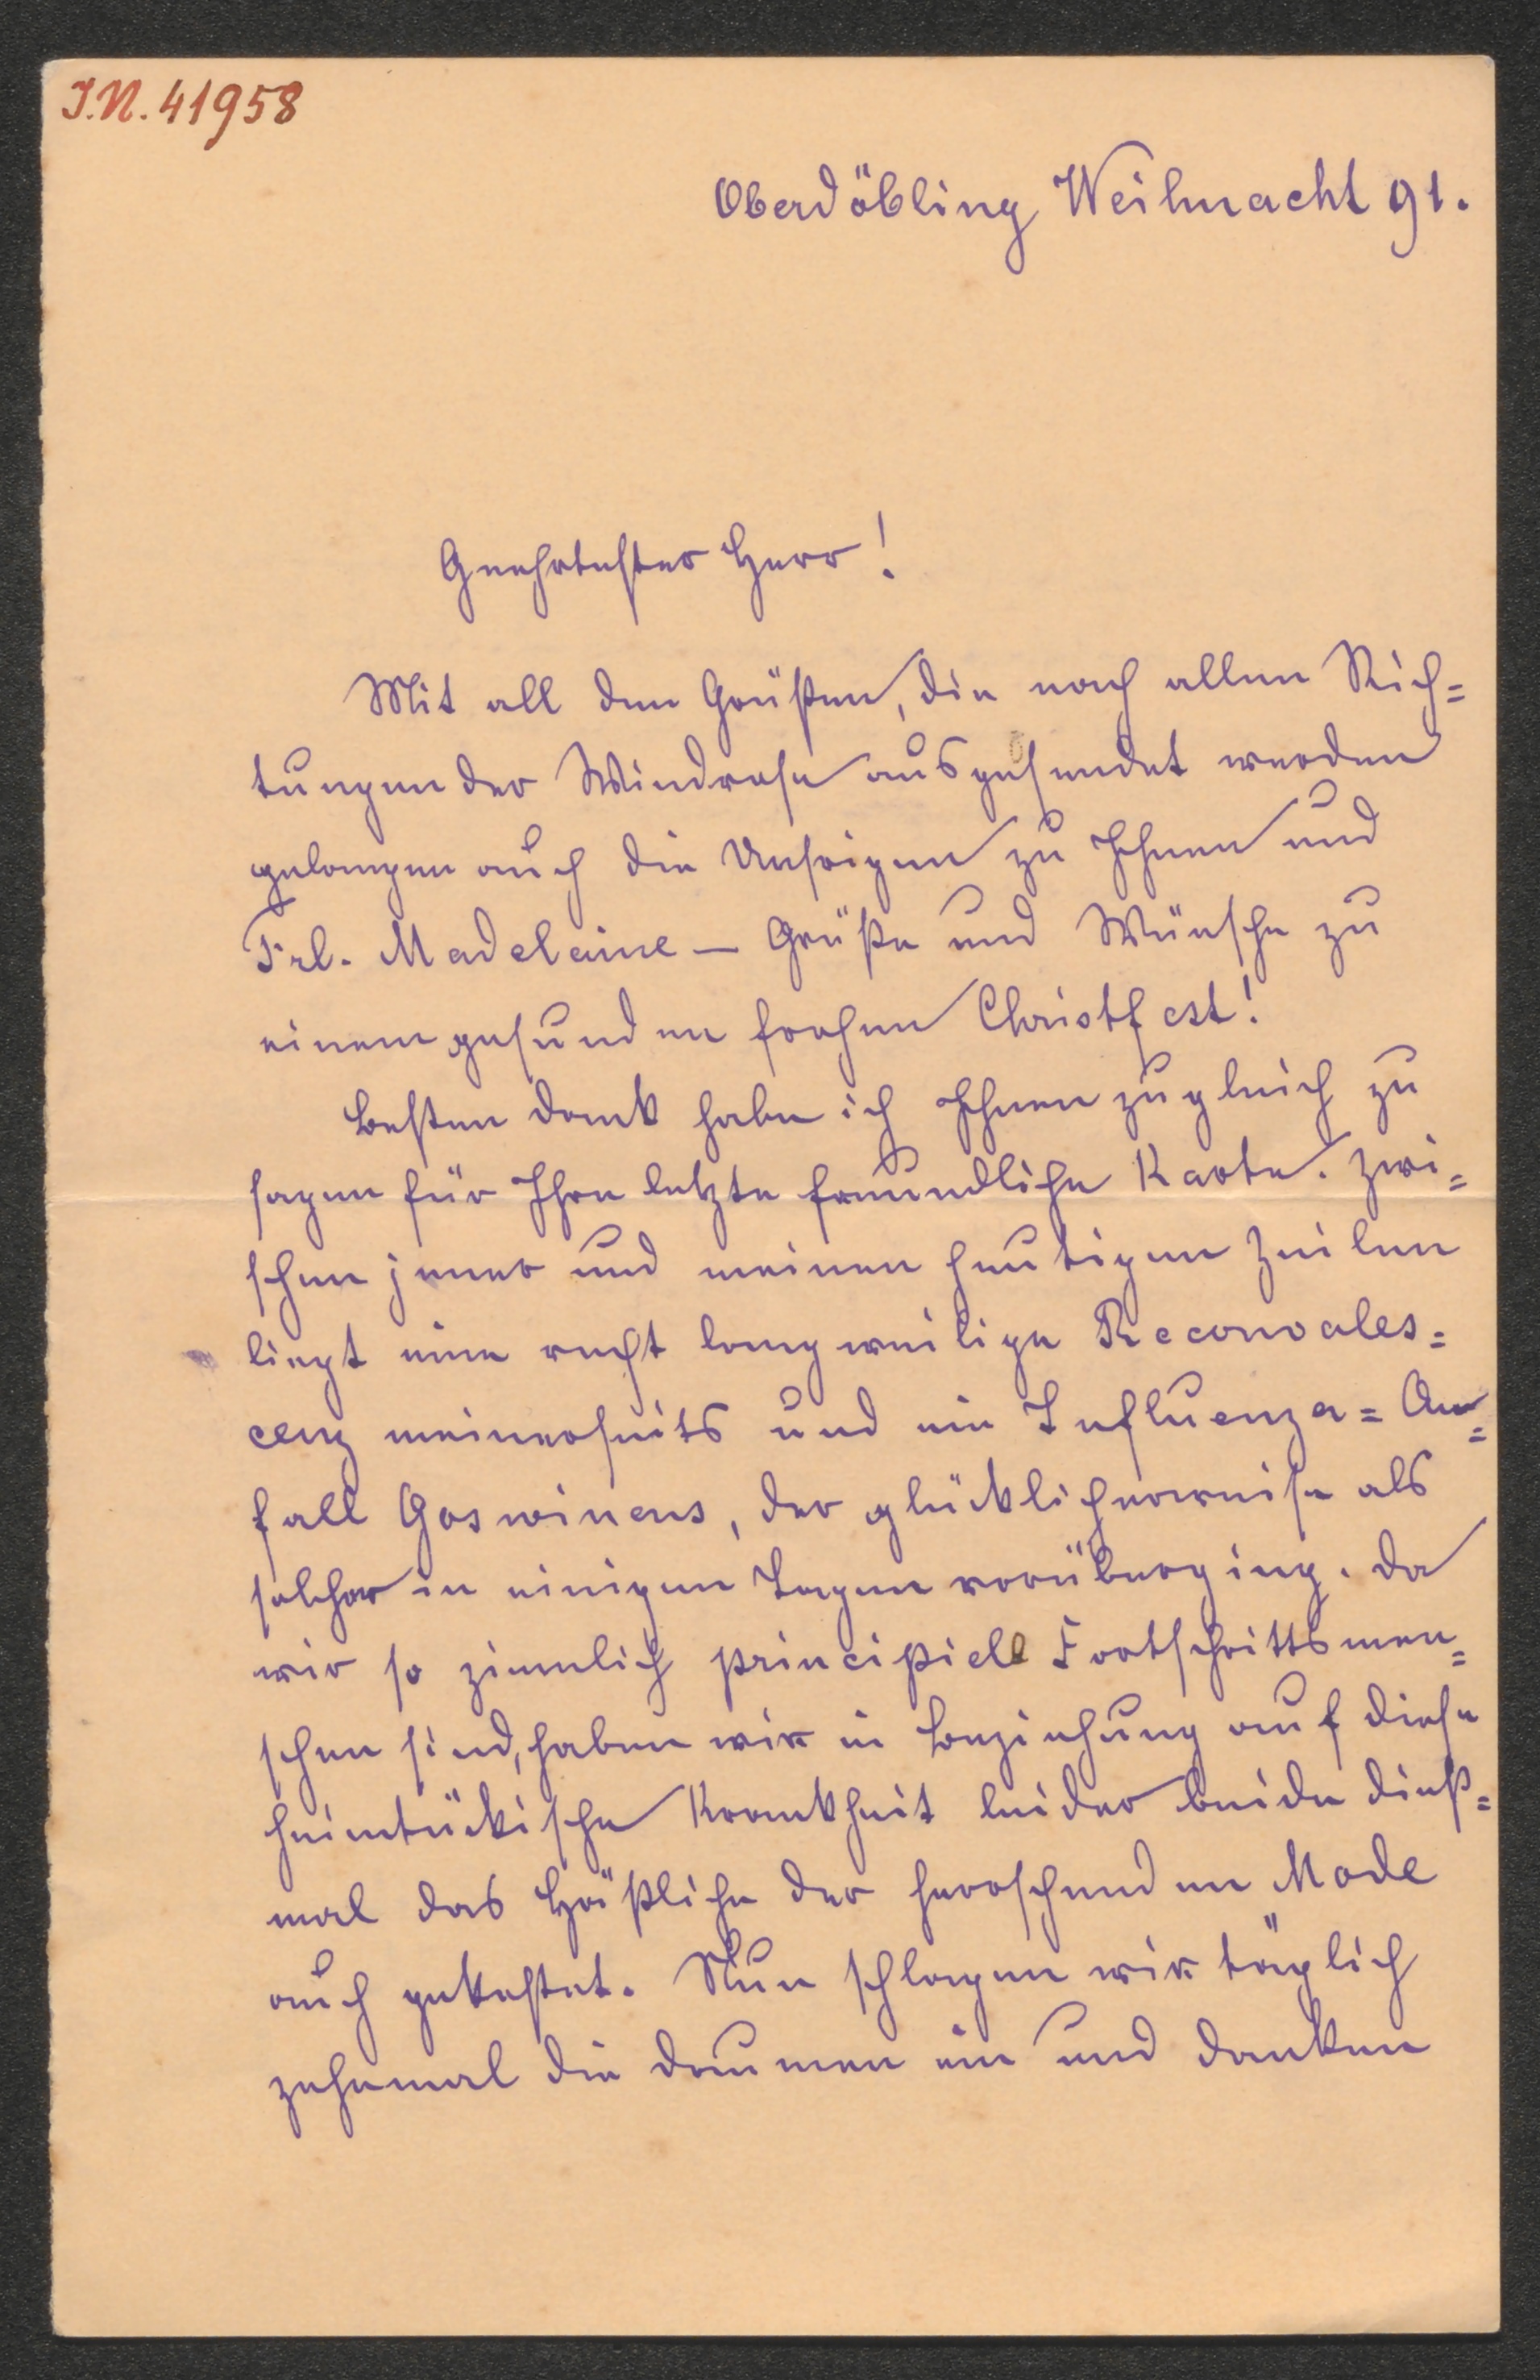 I.N. 41958
Oberdöbling Weihnacht 91.
Geehrtester Herr!
Mit all den Grüßen, die nach allen Rich=
tungen der Windrose ausgesendet werden
gelangen auch die Unsrigen zu Ihnen und
Frl. Madelaine – Grüße und Wünsche zu
einem gesunden frohen Christfest!
Besten Dank habe ich Ihnen zugleich zu
sagen für Ihre letzte freundliche Karte. Zwi=
schen jener und meinen heutigen Zeilen
liegt eine recht langweilige Reconvales=
cenz meinerseits und ein Influenza=An=
fall Goswinens, der glücklicherweise als
solcher in einigen Tagen vorüberging. Da
wir so ziemlich principiell Fortschrittsmen=
schen sind, haben wir in Beziehung auf diese
heimtückische Krankheit leider beide dieß=
mal das Häßliche der herrschenden Mode
auch gekostet. Nun schlagen wir täglich
zehnmal die Daumen ein und danken